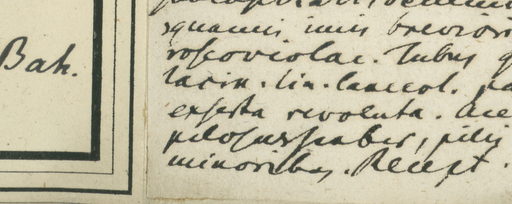 Bak.
squamis imis breviori
roseoviolac. Tubus g
lacin. lin. lanceol. pa
exserta revoluta. Ace
piloso scaber, pilis
minoribus. Recept.